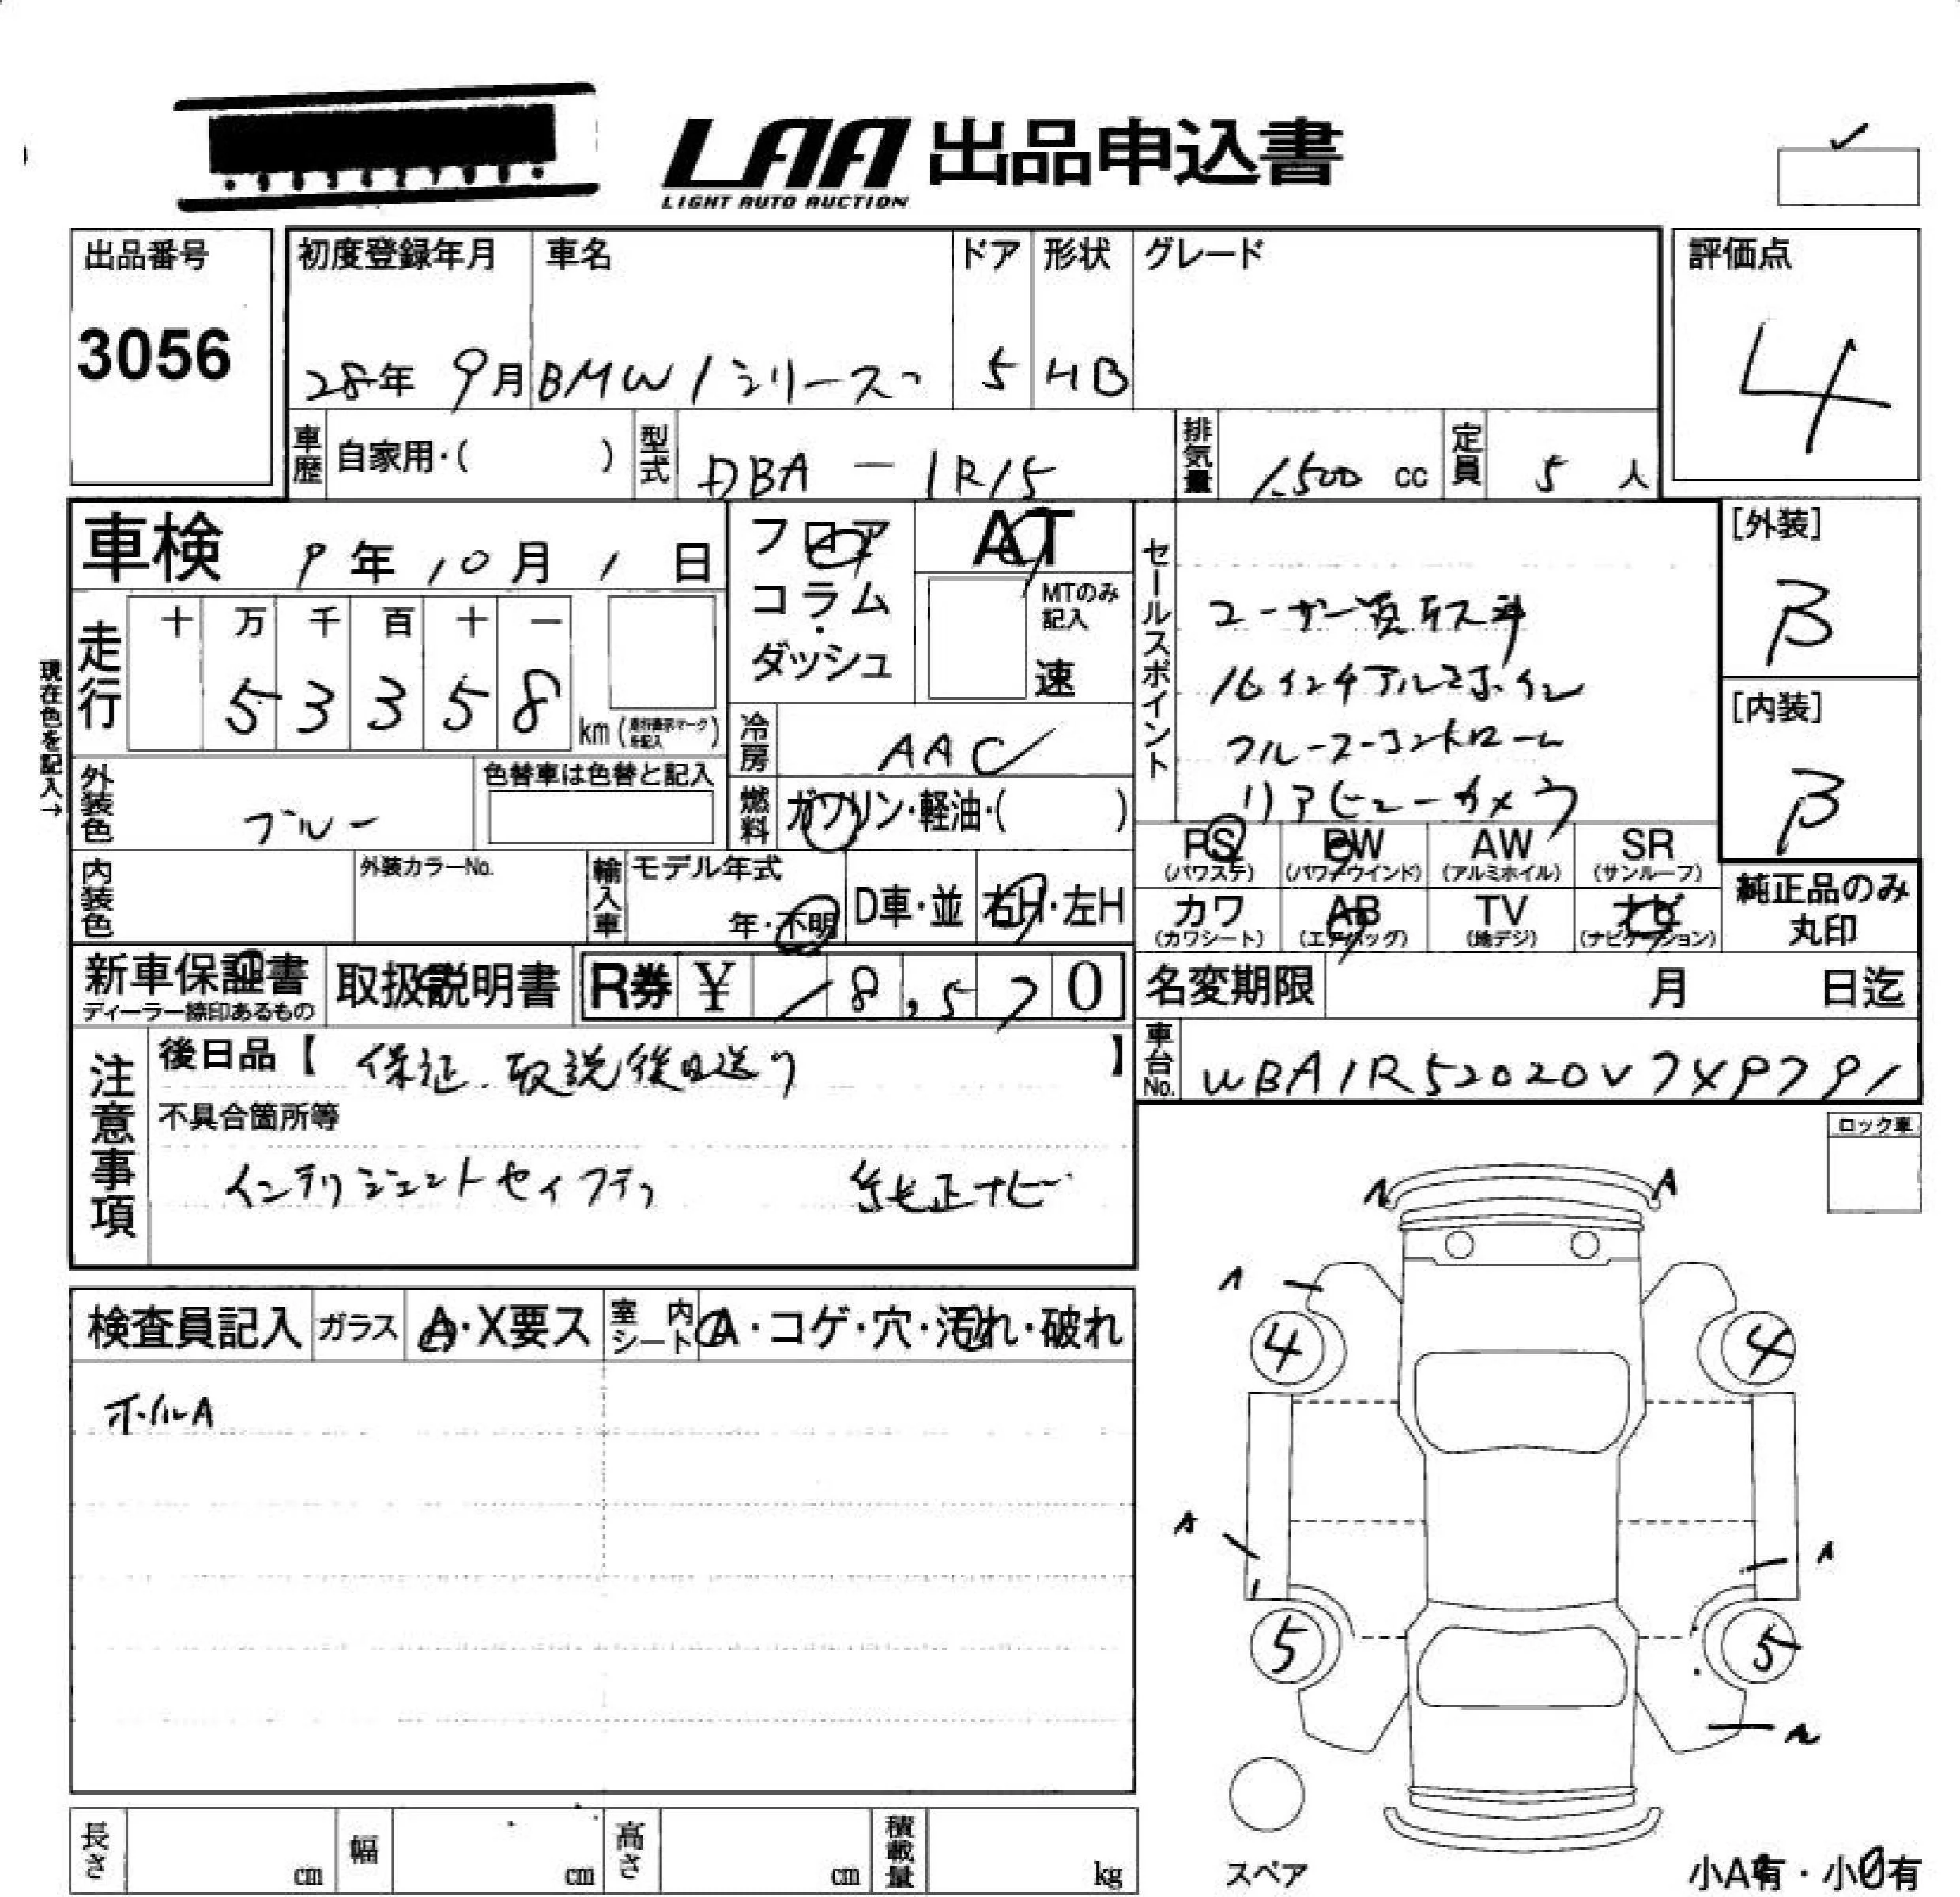 LAA 出品申込書
LIGHT AUTO AUCTION
出品番号
3056
初度登録年月
28年 9月
車名
BMW 1シリーズ
ドア
5
形状
HB
グレード
評価点
4
車歴 自家用・( )
型式 DBA - 1R15
排気量 1,500 cc
定員 5 人
車検 9年 10月 1日
フロア
コラム・
ダッシュ
AT
MTのみ記入
速
現在色を記入→
走行
十 万 千 百 十 一
5 3 3 5 8
km(走行表示マークを記入)
冷房 AAC
燃料 ガソリン・軽油・( )
外装色 ブルー
色替車は色替と記入
内装色
外装カラーNo.
輸入車 モデル年式
年・不明
D車・並
右H・左H
セールスポイント
16インチアルミホイル
クルーズコントロール
リアビューカメラ
[外装]
B
[内装]
B
PS (パワステ)
PW (パワーウインド)
AW (アルミホイル)
SR (サンルーフ)
カワ (カワシート)
AB (エアバッグ)
TV (地デジ)
ナビ (ナビゲーション)
純正品のみ
丸印
新車保証書
ディーラー捺印あるもの
取扱説明書
R券 ¥ 18,570
名変期限 月 日迄
車台No. WBA1R52020V7X9791
注意事項
後日品【 保証、取説後日送り 】
不具合箇所等
インテリジェントセイフティ 純正ナビ
ロック車
検査員記入
ガラス A・X要ス
室内シート A・コゲ・穴・汚れ・破れ
ホイルA
A
A
A
4
4
A
A
5
5
A
スペア
小A有・小U有
長さ cm
幅 cm
高さ cm
積載量 kg